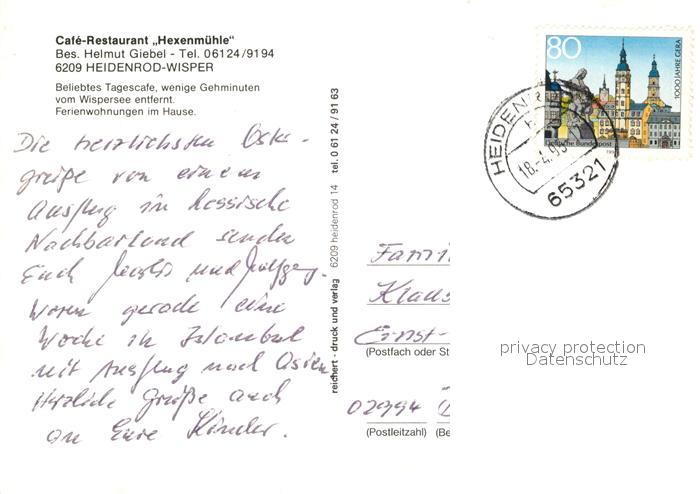 Café-Restaurant „Hexenmühle“
Bes. Helmut Giebel - Tel. 06124/9194
6209 HEIDENROD-WISPER
Beliebtes Tagescafe, wenige Gehminuten
vom Wispersee entfernt.
Ferienwohnungen im Hause.
Die herzlichsten Oster-
grüße von einem
Ausflug in hessische
Nachbarland senden
Euch und Wolfgang.
Waren gerade eine
Woche in Istanbul
mit Ausflug nach Asien
Herzliche Grüße auch
an Eure Kinder.
reichert - druck und verlag 6209 heidenrod 14 tel. 0 61 24 / 91 63
80
1000 JAHRE GERA
Deutsche Bundespost
HEIDENR
18.-4.95
65321
Famil
Klaus
Ernst-
(Postfach oder St
02994
(Postleitzahl) (Be
privacy protection
Datenschutz